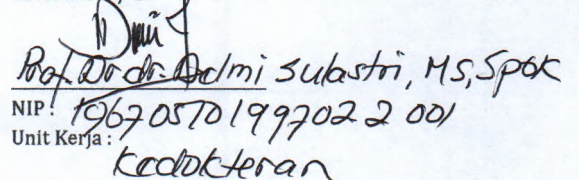 Prof. Dr. dr. Delmi Sulastri, MS, SpGK
NIP : 196705101997022001
Unit Kerja :
Kedokteran